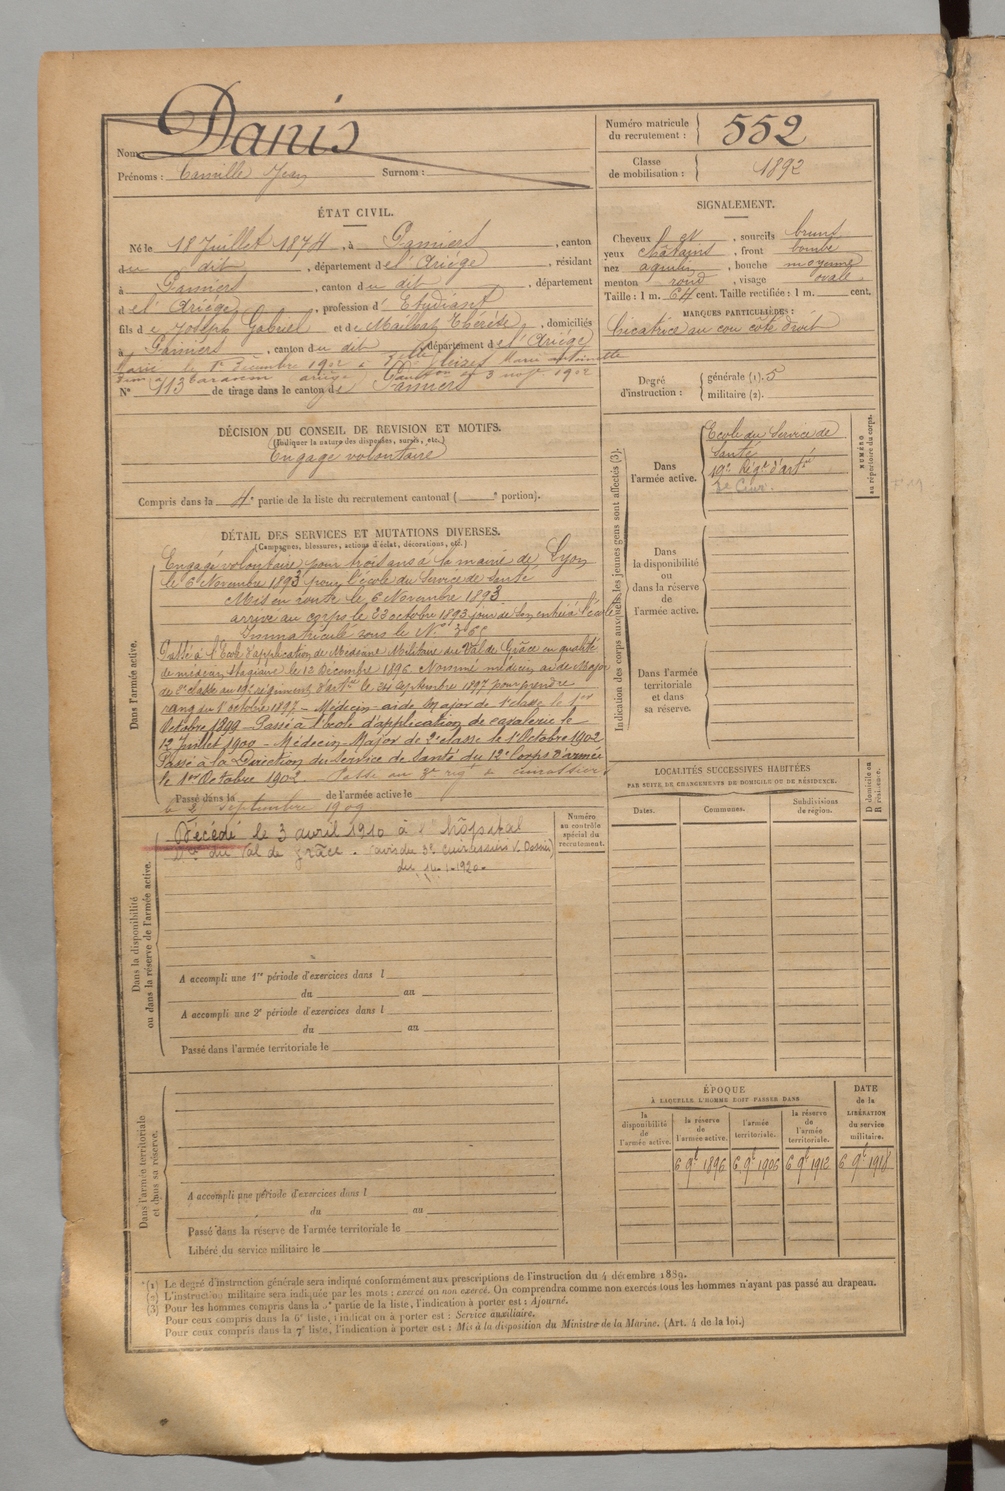 Nom : Danis
Prénoms : Camille Jean Surnom :
Numéro matricule du recrutement : 552
Classe de mobilisation : 1892
ÉTAT CIVIL.
Né le 18 Juillet 1874, à Pamiers, canton
du dit, département de l'Ariége, résidant
à Pamiers, canton du dit, département
de l'Ariége, profession d'Etudiant
fils de Joseph Gabriel et de Maillat Thérèse, domiciliés
à Pamiers, canton du dit, département de l'Ariége
Marié le 1er Décembre 1902 à Marie Antoinette
Tarascon ariège 3 1902
N° 113 de tirage dans le canton de Pamiers
SIGNALEMENT.
Cheveux, sourcils bruns
yeux châtains, front bombé
nez aquilin, bouche moyenne
menton rond, visage ovale
Taille : 1 m. 64 cent. Taille rectifiée : 1 m. cent.
MARQUES PARTICULIÈRES :
Cicatrice au cou côté droit
Degré d'instruction : générale (1). 5
militaire (2).
DÉCISION DU CONSEIL DE REVISION ET MOTIFS.
(Indiquer la nature des dispenses, sursis, etc.)
Engagé volontaire
Compris dans la 4e partie de la liste du recrutement cantonal ( e portion).
DÉTAIL DES SERVICES ET MUTATIONS DIVERSES.
(Campagnes, blessures, actions d'éclat, décorations, etc.)
Dans l'armée active.
Engagé volontaire pour trois ans à la mairie de Lyon
le 6 Novembre 1893 pour l'école du Service de Santé
Mis en route le 6 Novembre 1893
arrivé au corps le 23 octobre 1893 jour de son entrée à l'école
Immatriculé sous le N° 365
Passé à l'Ecole d'application de Médecine Militaire du Val de Grâce en qualité
de médecin stagiaire le 12 Décembre 1896. Nommé médecin aide Major
de 2e classe au 19e régiment d'artie le 24 Septembre 1897 pour prendre
rang du 1er octobre 1897 - Médecin aide Major de 1e classe le 1er
Octobre 1899 - Passé à l'école d'application de cavalerie le
12 Juillet 1900 - Médecin-Major de 2e classe le 1er Octobre 1902
Passé à la Direction du Service de Santé du 12e Corps d'armée
le 1er Octobre 1902. Passé au 3e rigt de cuirassiers
Passé dans la de l'armée active le
le 2 septembre 1909
Dans la disponibilité ou dans la réserve de l'armée active.
Décédé le 3 avril 1910 à l'hôpital
du Val de Grâce. (avis du 3e cuirassiers V. Dossier)
du 16.1.1920.
Numéro au contrôle spécial du recrutement.
A accompli une 1re période d'exercices dans l
du au
A accompli une 2e période d'exercices dans l
du au
Passé dans l'armée territoriale le
Dans l'armée territoriale et dans sa réserve.
A accompli une période d'exercices dans l
du au
Passé dans la réserve de l'armée territoriale le
Libéré du service militaire le
Indication des corps auxquels les jeunes gens sont affectés (3).
NUMÉRO au répertoire du corps.
Dans l'armée active.
Ecole du Service de
Santé
19e Régt d'artie
3e Cuir.
Dans la disponibilité ou dans la réserve de l'armée active.
Dans l'armée territoriale et dans sa réserve.
LOCALITÉS SUCCESSIVES HABITÉES
PAR SUITE DE CHANGEMENTS DE DOMICILE OU DE RÉSIDENCE.
Dates. Communes. Subdivisions de région. D domicile ou R résidence.
ÉPOQUE
À LAQUELLE L'HOMME DOIT PASSER DANS
la disponibilité de l'armée active. la réserve de l'armée active. l'armée territoriale. la réserve de l'armée territoriale. DATE de la LIBÉRATION du service militaire.
6 9e 1896 6 9e 1906 6 9e 1912 6 9e 1918
(1) Le degré d'instruction générale sera indiqué conformément aux prescriptions de l'instruction du 4 décembre 1889.
(2) L'instruction militaire sera indiquée par les mots : exercé ou non exercé. On comprendra comme non exercés tous les hommes n'ayant pas passé au drapeau.
(3) Pour les hommes compris dans la 5e partie de la liste, l'indication à porter est : Ajourné.
Pour ceux compris dans la 6e liste, l'indication à porter est : Service auxiliaire.
Pour ceux compris dans la 7e liste, l'indication à porter est : Mis à la disposition du Ministre de la Marine. (Art. 4 de la loi.)